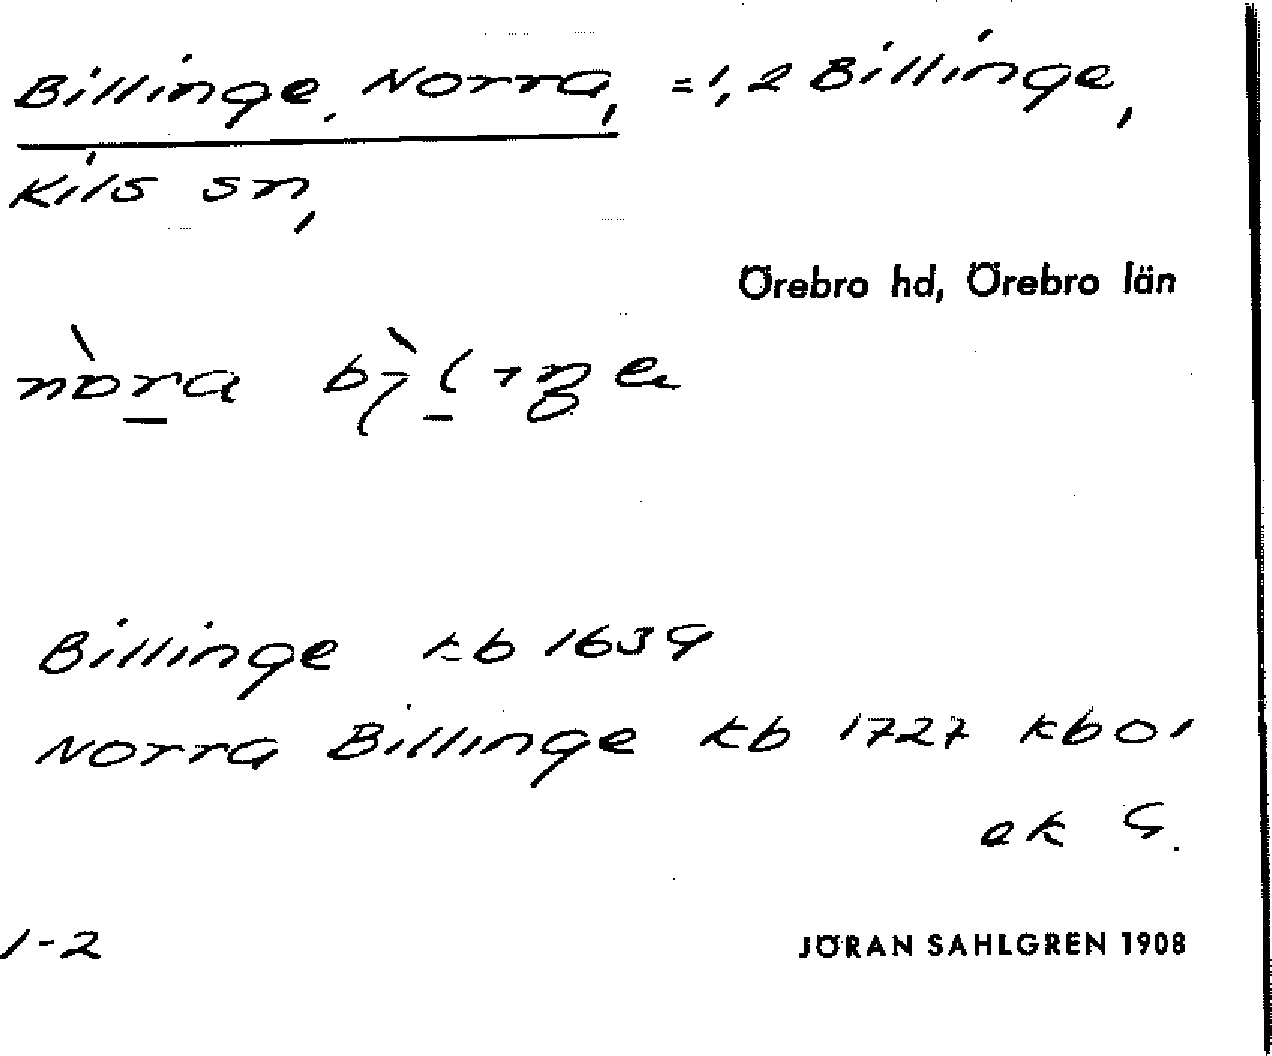 Billinge, Norra, = 1, 2 Billinge,
Kils sn,
Örebro hd, Örebro län
nòra
Billinge kb 1639
Norra Billinge kb 1727 kb01
ek G.
1-2
JÖRAN SAHLGREN 1908